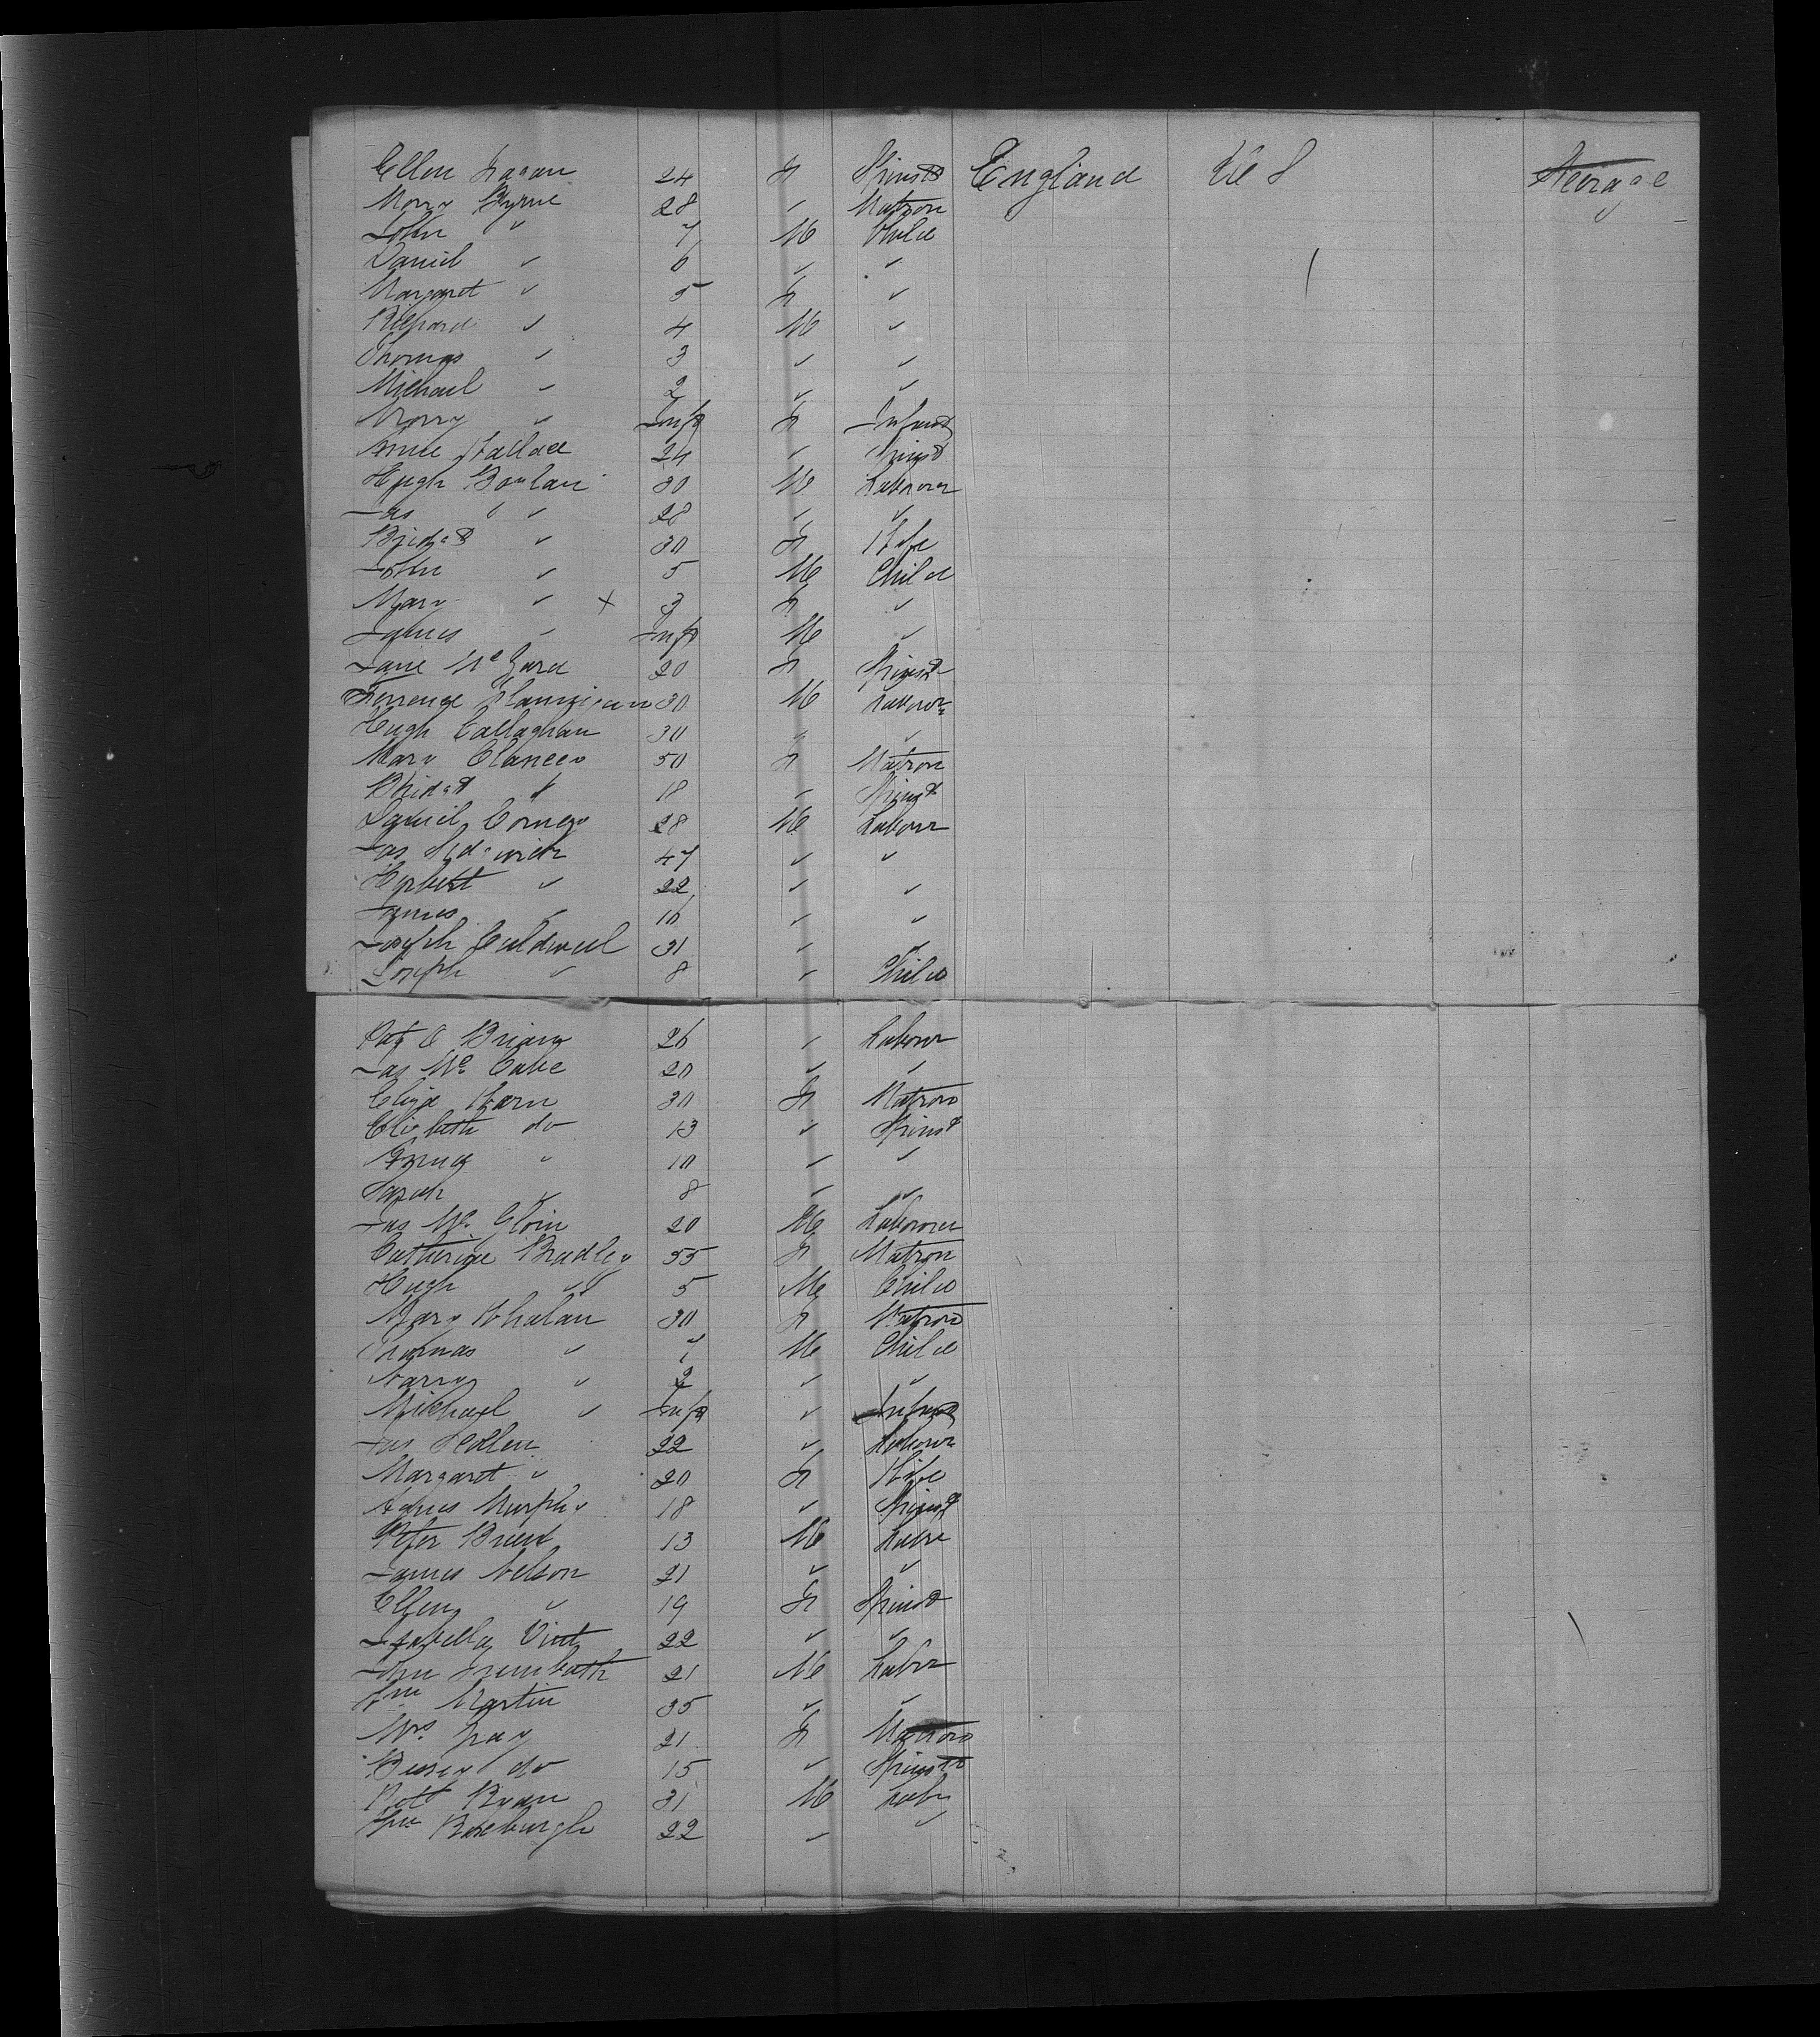 Ellen Fagan 24 F Spinst England U S Steerage
Mary Byrne 28 " Matron
John " 7 M Child
Daniel " 6 " "
Margaret " 5 F "
Richard " 4 M "
Thomas " 3 " "
Michael " 2 " "
Mary " Inft F Infant
Annie Wallace 24 " Spinst
Hugh 30 M Labourer
Jas " 28 " "
Bridgt " 30 F Wife
John " 5 M Child
Mary " x 3 F "
James " Inft M "
Jane 20 F Spinst
Terrence Flannigan 30 M Labour
Hugh Callaghan 30 " "
Mary Clancey 50 F Matron
Bridgt " 18 " Spinst
Daniel 28 M Labour
Jas Sidgwick 47 " "
Herbert " 22 " "
James " 10 " "
Joseph Caldwell 31 " "
Joseph " 8 " Child
Pat O Brian 26 " Labour
Jas Mc Cabe 20 " "
Eliza 30 F Matron
Elizbeth do 13 " Spinst
" 10 " "
Sarah " 8 " "
Jas Mc Gloin 20 M Labourer
Catherine Bradley 55 F Matron
Hugh " 5 M Child
Mary Whalan 30 F Matron
Thomas " 7 M Child
Harry " 2 " "
Michael " Inft " Infant
Jas 22 " Labour
Margaret " 20 F Wife
Agnes Murphy 18 " Spinst
Peter 13 M Labr
James Nelson 21 " "
Ellen " 19 F Spinst
Isabella Vint 22 " "
John Trembath 21 M Labr
Wm Martin 35 " "
Mrs Gray 21 F Matron
do 15 " Spinst
Robt 31 M Labr
Wm Roxburgh 22 " "